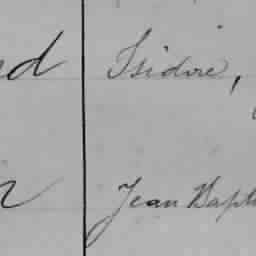 Isidore,
Jean Bapt